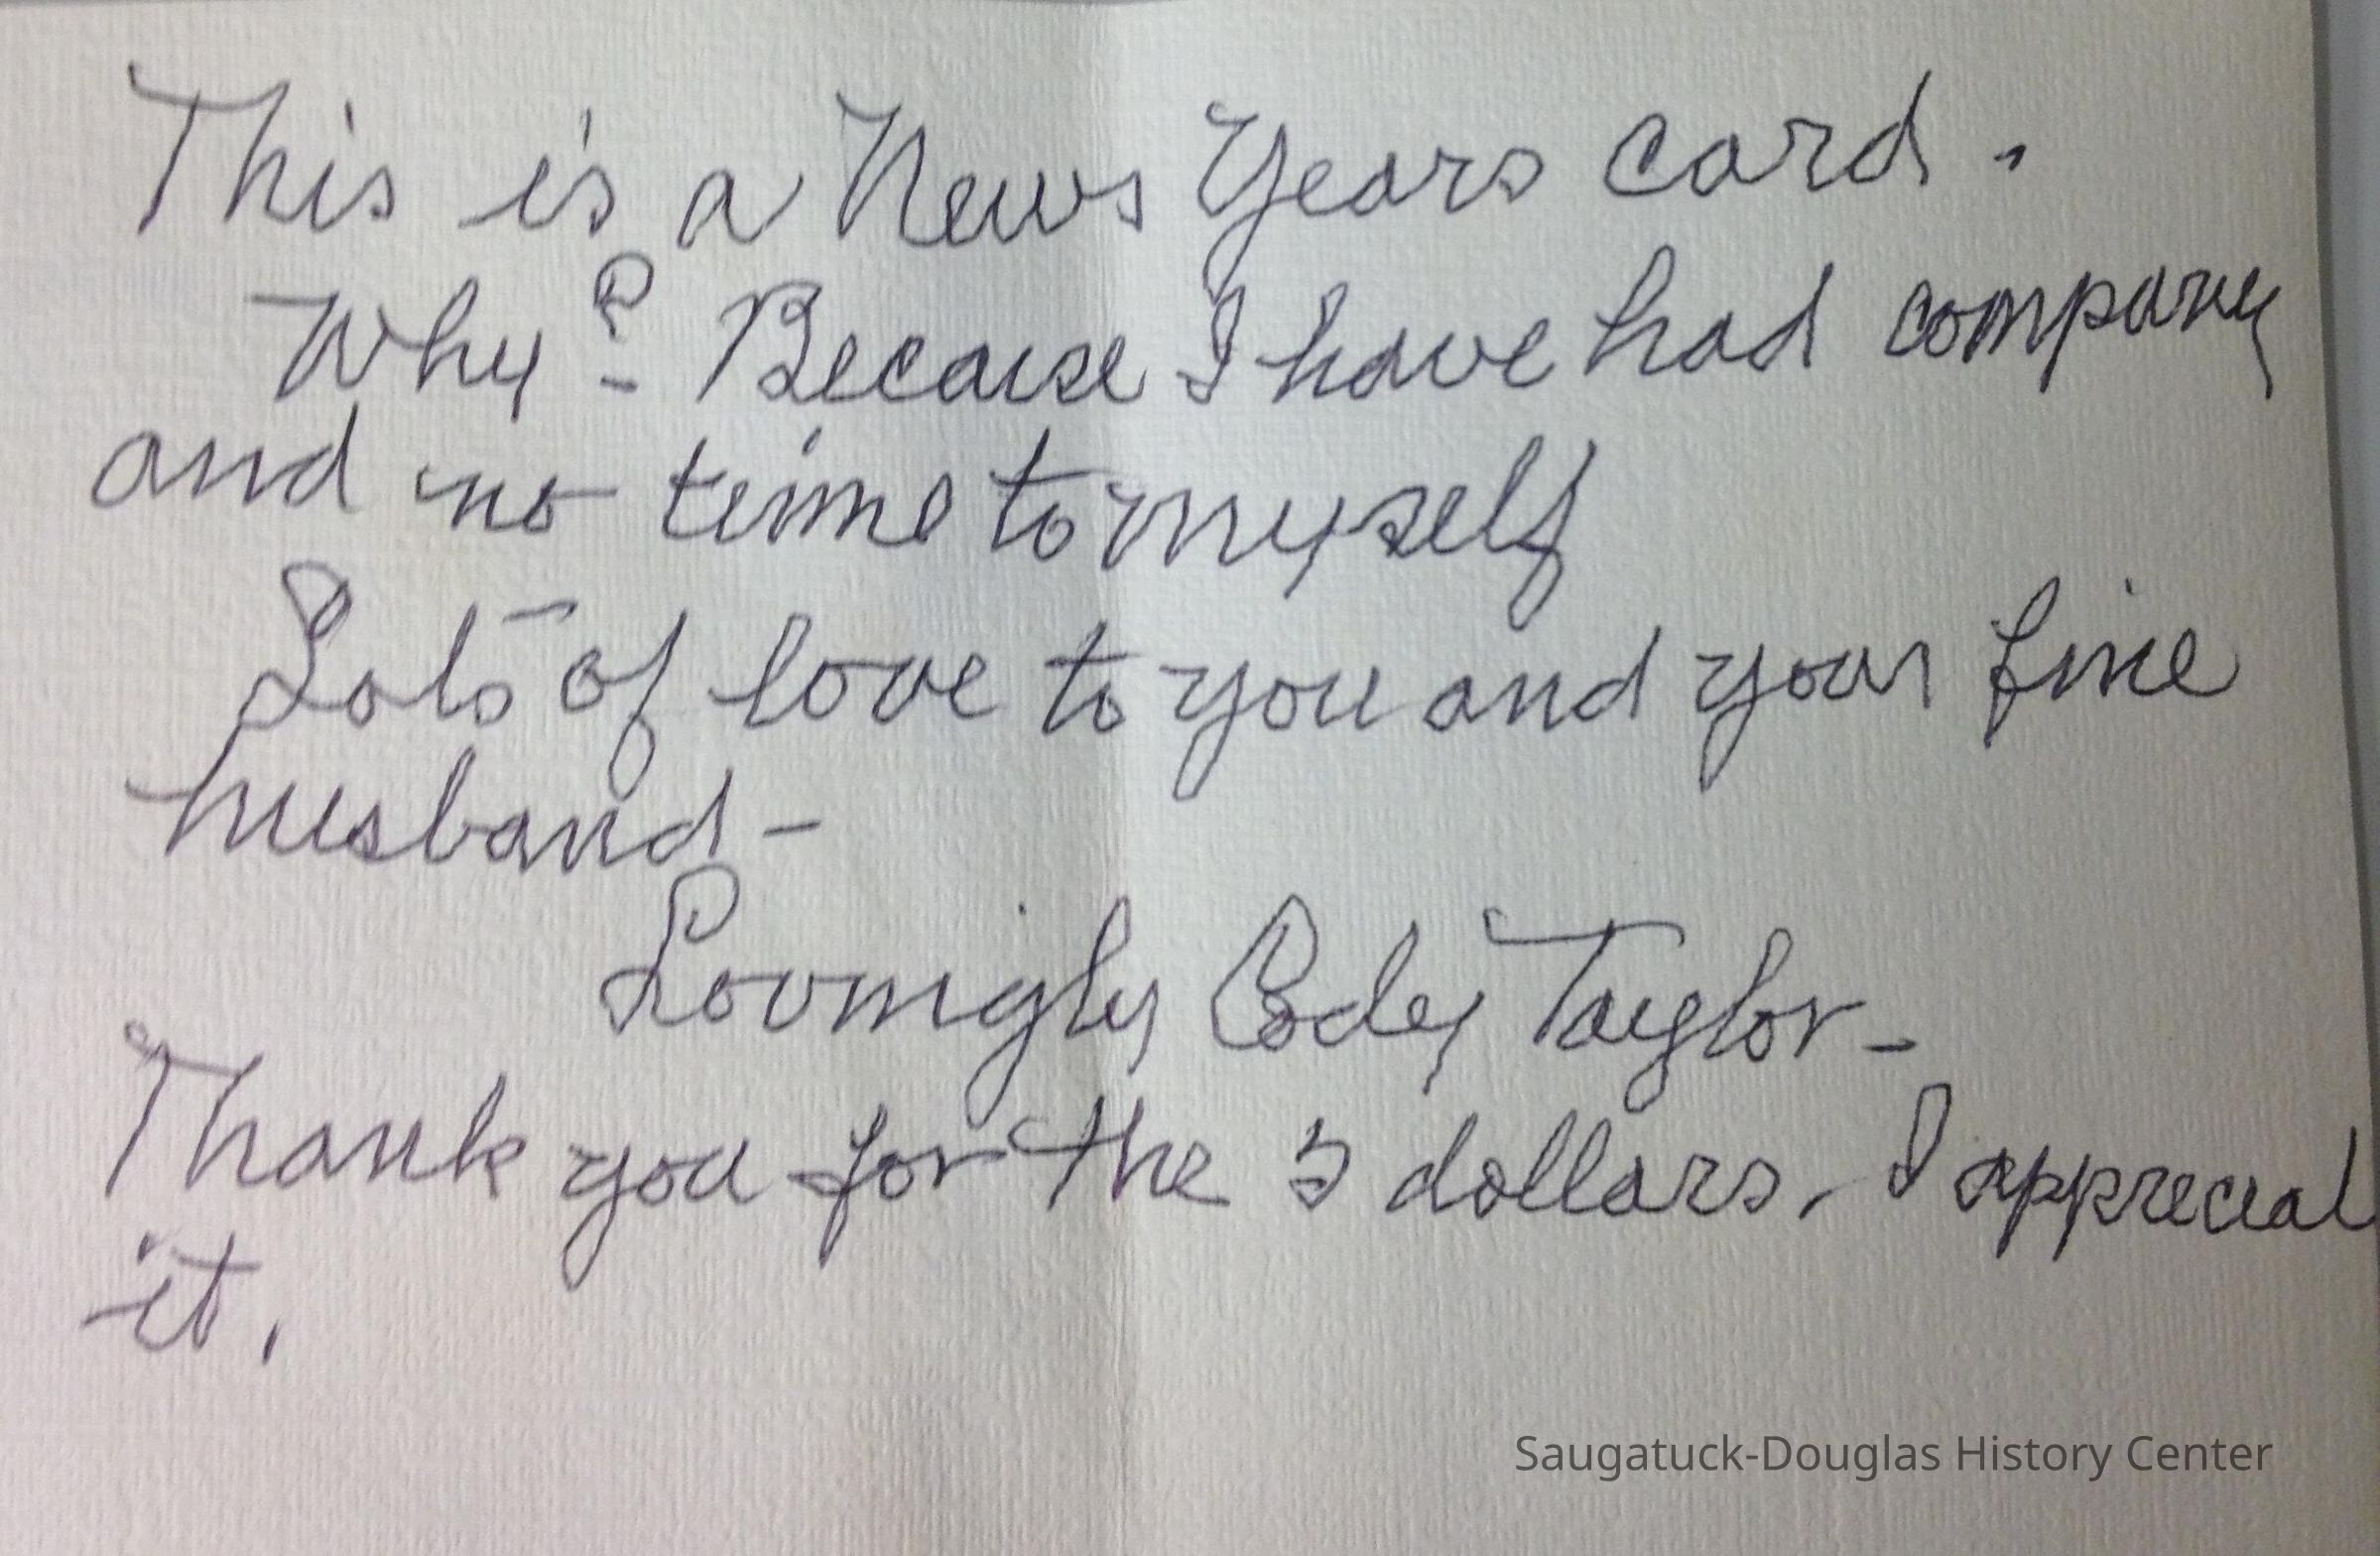 This is a News Years card.
Why? Because I have had company
and no time to myself
Lots of love to you and your fine
husband -
Lovingly Cody Taylor -
Thank you for the 5 dollars. I appreciat
it.
Saugatuck-Douglas History Center